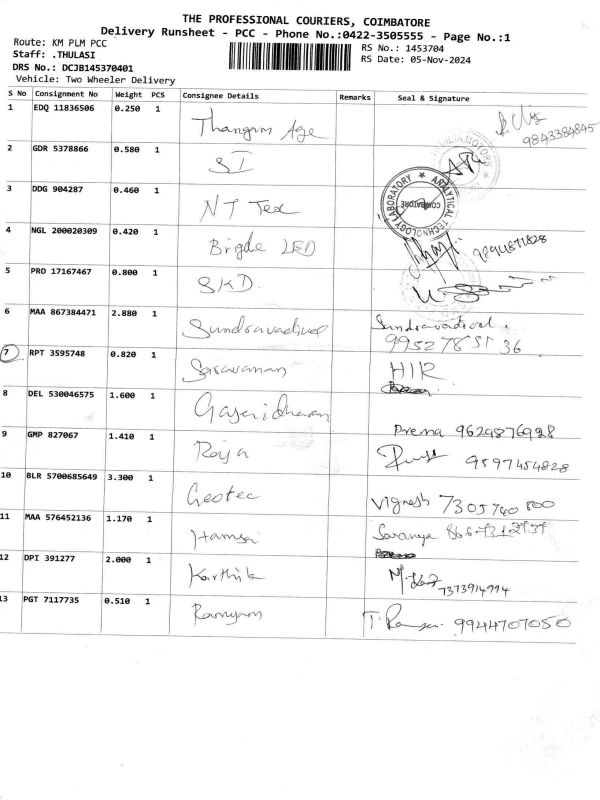 THE PROFESSIONAL COURIERS, COIMBATORE
Delivery Runsheet - PCC - Phone No.:0422-3505555 - Page No.:1
Route: KM PLM PCC
RS No.: 1453704
Staff: .THULASI
RS Date: 05-Nov-2024
DRS No.: DCJB145370401
Vehicle: Two Wheeler Delivery
S No Consignment No Weight PCS Consignee Details Remarks Seal & Signature
1 EDQ 11836506 0.250 1 Thangam Age 9843384845
2 GDR 5378866 0.580 1 SI
3 DDG 904287 0.460 1 NT Tex
ANALYTICAL TECHNOLOGY LABORATORY COIMBATORE
4 NGL 200020309 0.420 1 Brigde LED 9894871828
5 PRO 17167467 0.800 1 SKD.
6 MAA 867384471 2.880 1 Sundravadivel Sundravadivel.
99527851 36
7 RPT 3595748 0.820 1 Saravanan HIR
8 DEL 530046575 1.600 1 Gajendharan Prema 9629876928
9 GMP 827067 1.410 1 Roja 9597454828
10 BLR 5700685649 3.300 1 Geotec Vignesh 7305740800
11 MAA 576452136 1.170 1 Hamsa Saranya
12 DPI 391277 2.000 1 Karthik 7373914994
13 PGT 7117735 0.510 1 Ramyam T. 9944707050